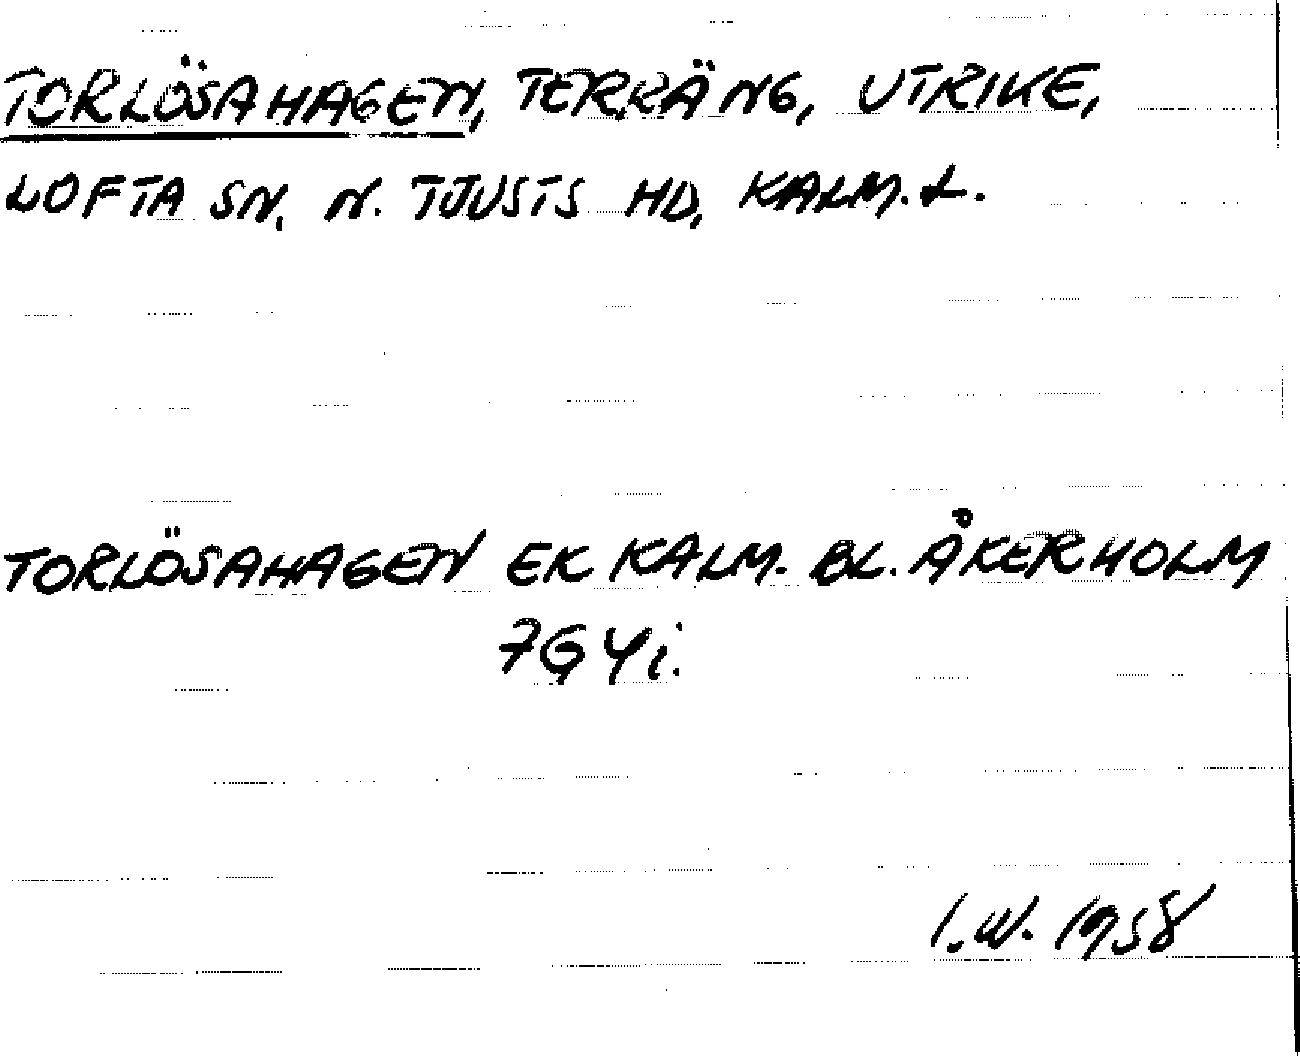 TORLÖSAHAGEN, TERRÄNG, UTRIKE,
LOFTA SN, N. TJUSTS HD, KALM. L.
TORLÖSAHAGEN EK KALM. BL. ÅKERHOLM
7G4i.
I.W. 1958